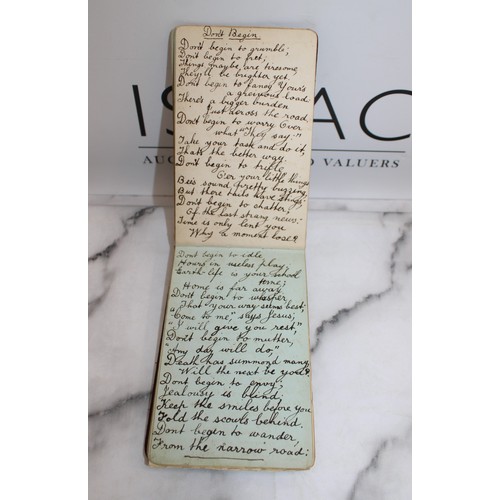 Don't Begin.
Don't begin to grumble;
Don't begin to fret;
Things maybe, are tiresome,
They'll be brighter yet.
Don't begin to fancy Your's
a greivious load
There's a bigger burden
Just across the road.
Don't begin to worry Over
what "They say:"
Take your task and do it,
That's the better way.
Don't begin to trifle
O'er your little things
Bees sound pretty buzzing,
But there tails have stings.
Don't begin to chatter;
Of the last strang news;
Time is only lent you
Why a moment lose?
Don't begin to idle
Hours in useless play,
Earth-life is your school
time;
Home is far away.
Don't begin to whisper
That your way seems best;
"Come to me," says Jesus;
"I will give you rest,"
Don't begin to mutter,
"Any day will do,"
Death has summond many
Will the next be you?
Dont begin to envy;
Jealousy is blind,
Keep the smiles before you
Fold the scouls behind.
Dont begin to wander,
From the narrow road;
IS AC
AUC D VALUERS